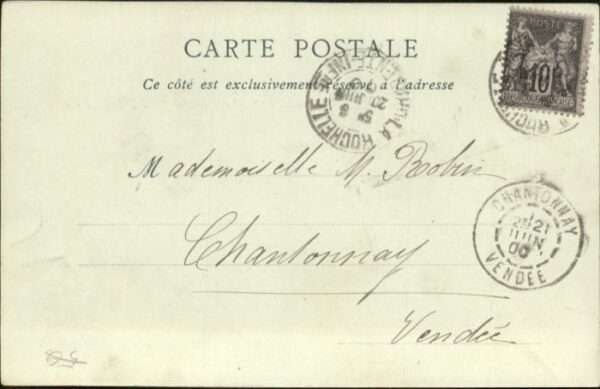 CARTE POSTALE
Ce côté est exclusivement réservé à l'adresse
POSTE
10
LA ROCHELLE
Mademoiselle M. Robin
Chantonnay
Vendée
CHANTONNAY
21
JUIN
00
VENDÉE